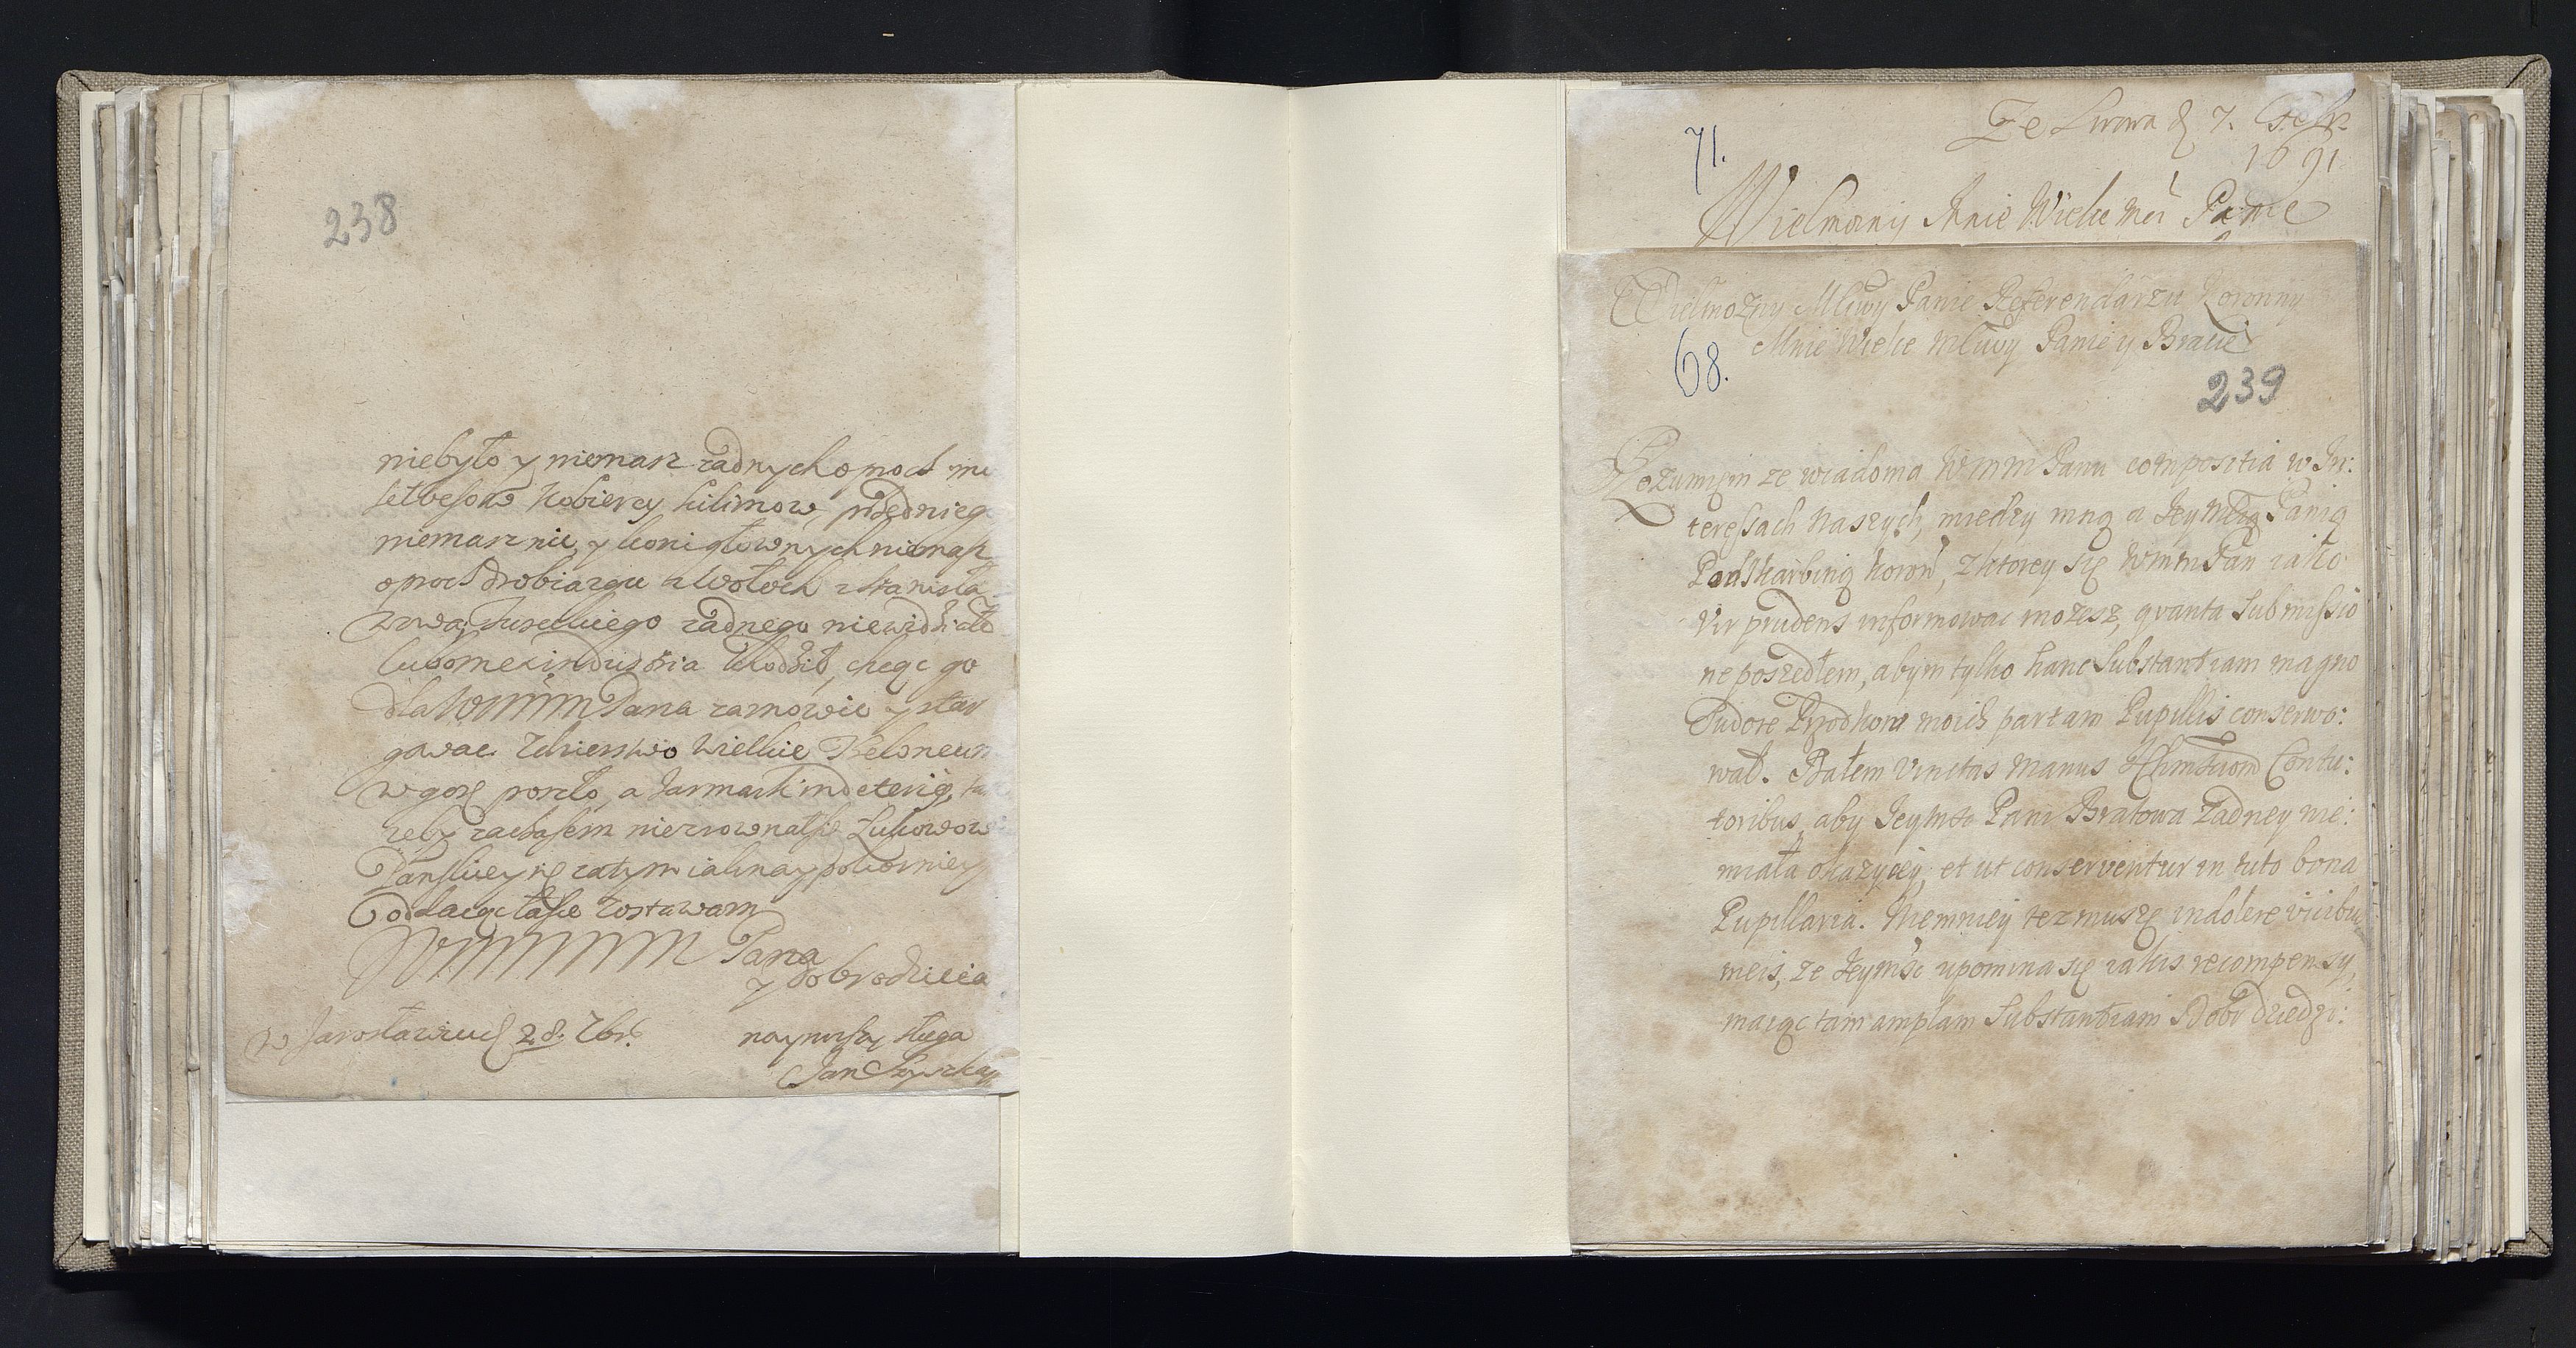 238
niebyło y niemasz zadnych oprocz mu
kobiercy kilimow,
niemasz nic, y koni głownych niemasz
oprocz drobiazgu a Wołoch z Stanisła
wowa, Tureckiego zadnego niewidziałe
lubom ex industria chodził, chcąc go
dla WMMM Pana zamowic y star
gowac. Zdzierstwo wielkie
w gorę poszło, a Jarmark in
zeby zaczasem niezrownał się
Panskiey się zatym iaknaypokorniey
Oddaiąc łasce zostawam
WMMMM Pana
y dobrodzieia
w Jarosławiu d 28. 7br.
naynizszy sługa
Jan
71.
Ze Lwowa d 7.
1691
Wielmozny Mnie Wielce Mci Panie
Wielmozny Mciwy Panie Referendarzu Koronny
Mnie Wielce Mciwy Panie y Bracie
68.
239
Rozumiem ze wiadoma WMM Panu compositia w In:
teressach naszych, miedzy mną a Jeymcią Panią
Podskarbiną Koron, z ktorey się WMM Pan iako
Vir prudens informowac mozesz, qvanta submissio
ne poszedłem, abym tylko hanc substantiam magno
Sudore Przodkow moich partam Pupillis conserwo:
wał. Dałem vinctas manus Contu:
toribus, aby Jeymsc Pani Bratowa zadney nie:
miała okazyey, et ut conserventur in tuto bona
Pupillaria. Niemniey tez muszę indolere vicibus
meis, ze Jeymsc upomina się iakiis recompensy,
maiąc tam amplam Substantiam Dobr dziedzi: